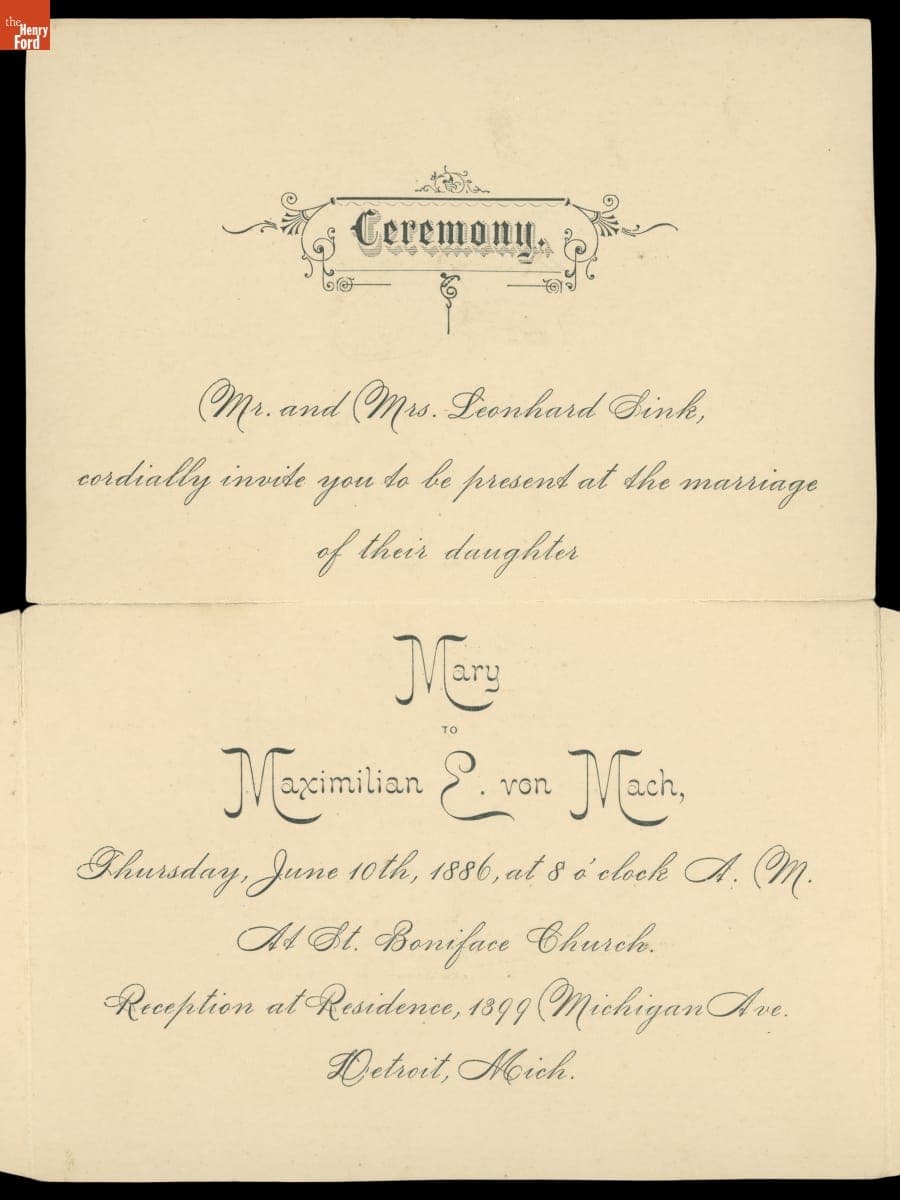 the
Henry
Ford
Ceremony.
Mr. and Mrs. Leonhard Sink,
cordially invite you to be present at the marriage
of their daughter
Mary
TO
Maximilian E. von Mach,
Thursday, June 10th, 1886, at 8 o'clock A. M.
At St. Boniface Church.
Reception at Residence, 1399 Michigan Ave.
Detroit, Mich.